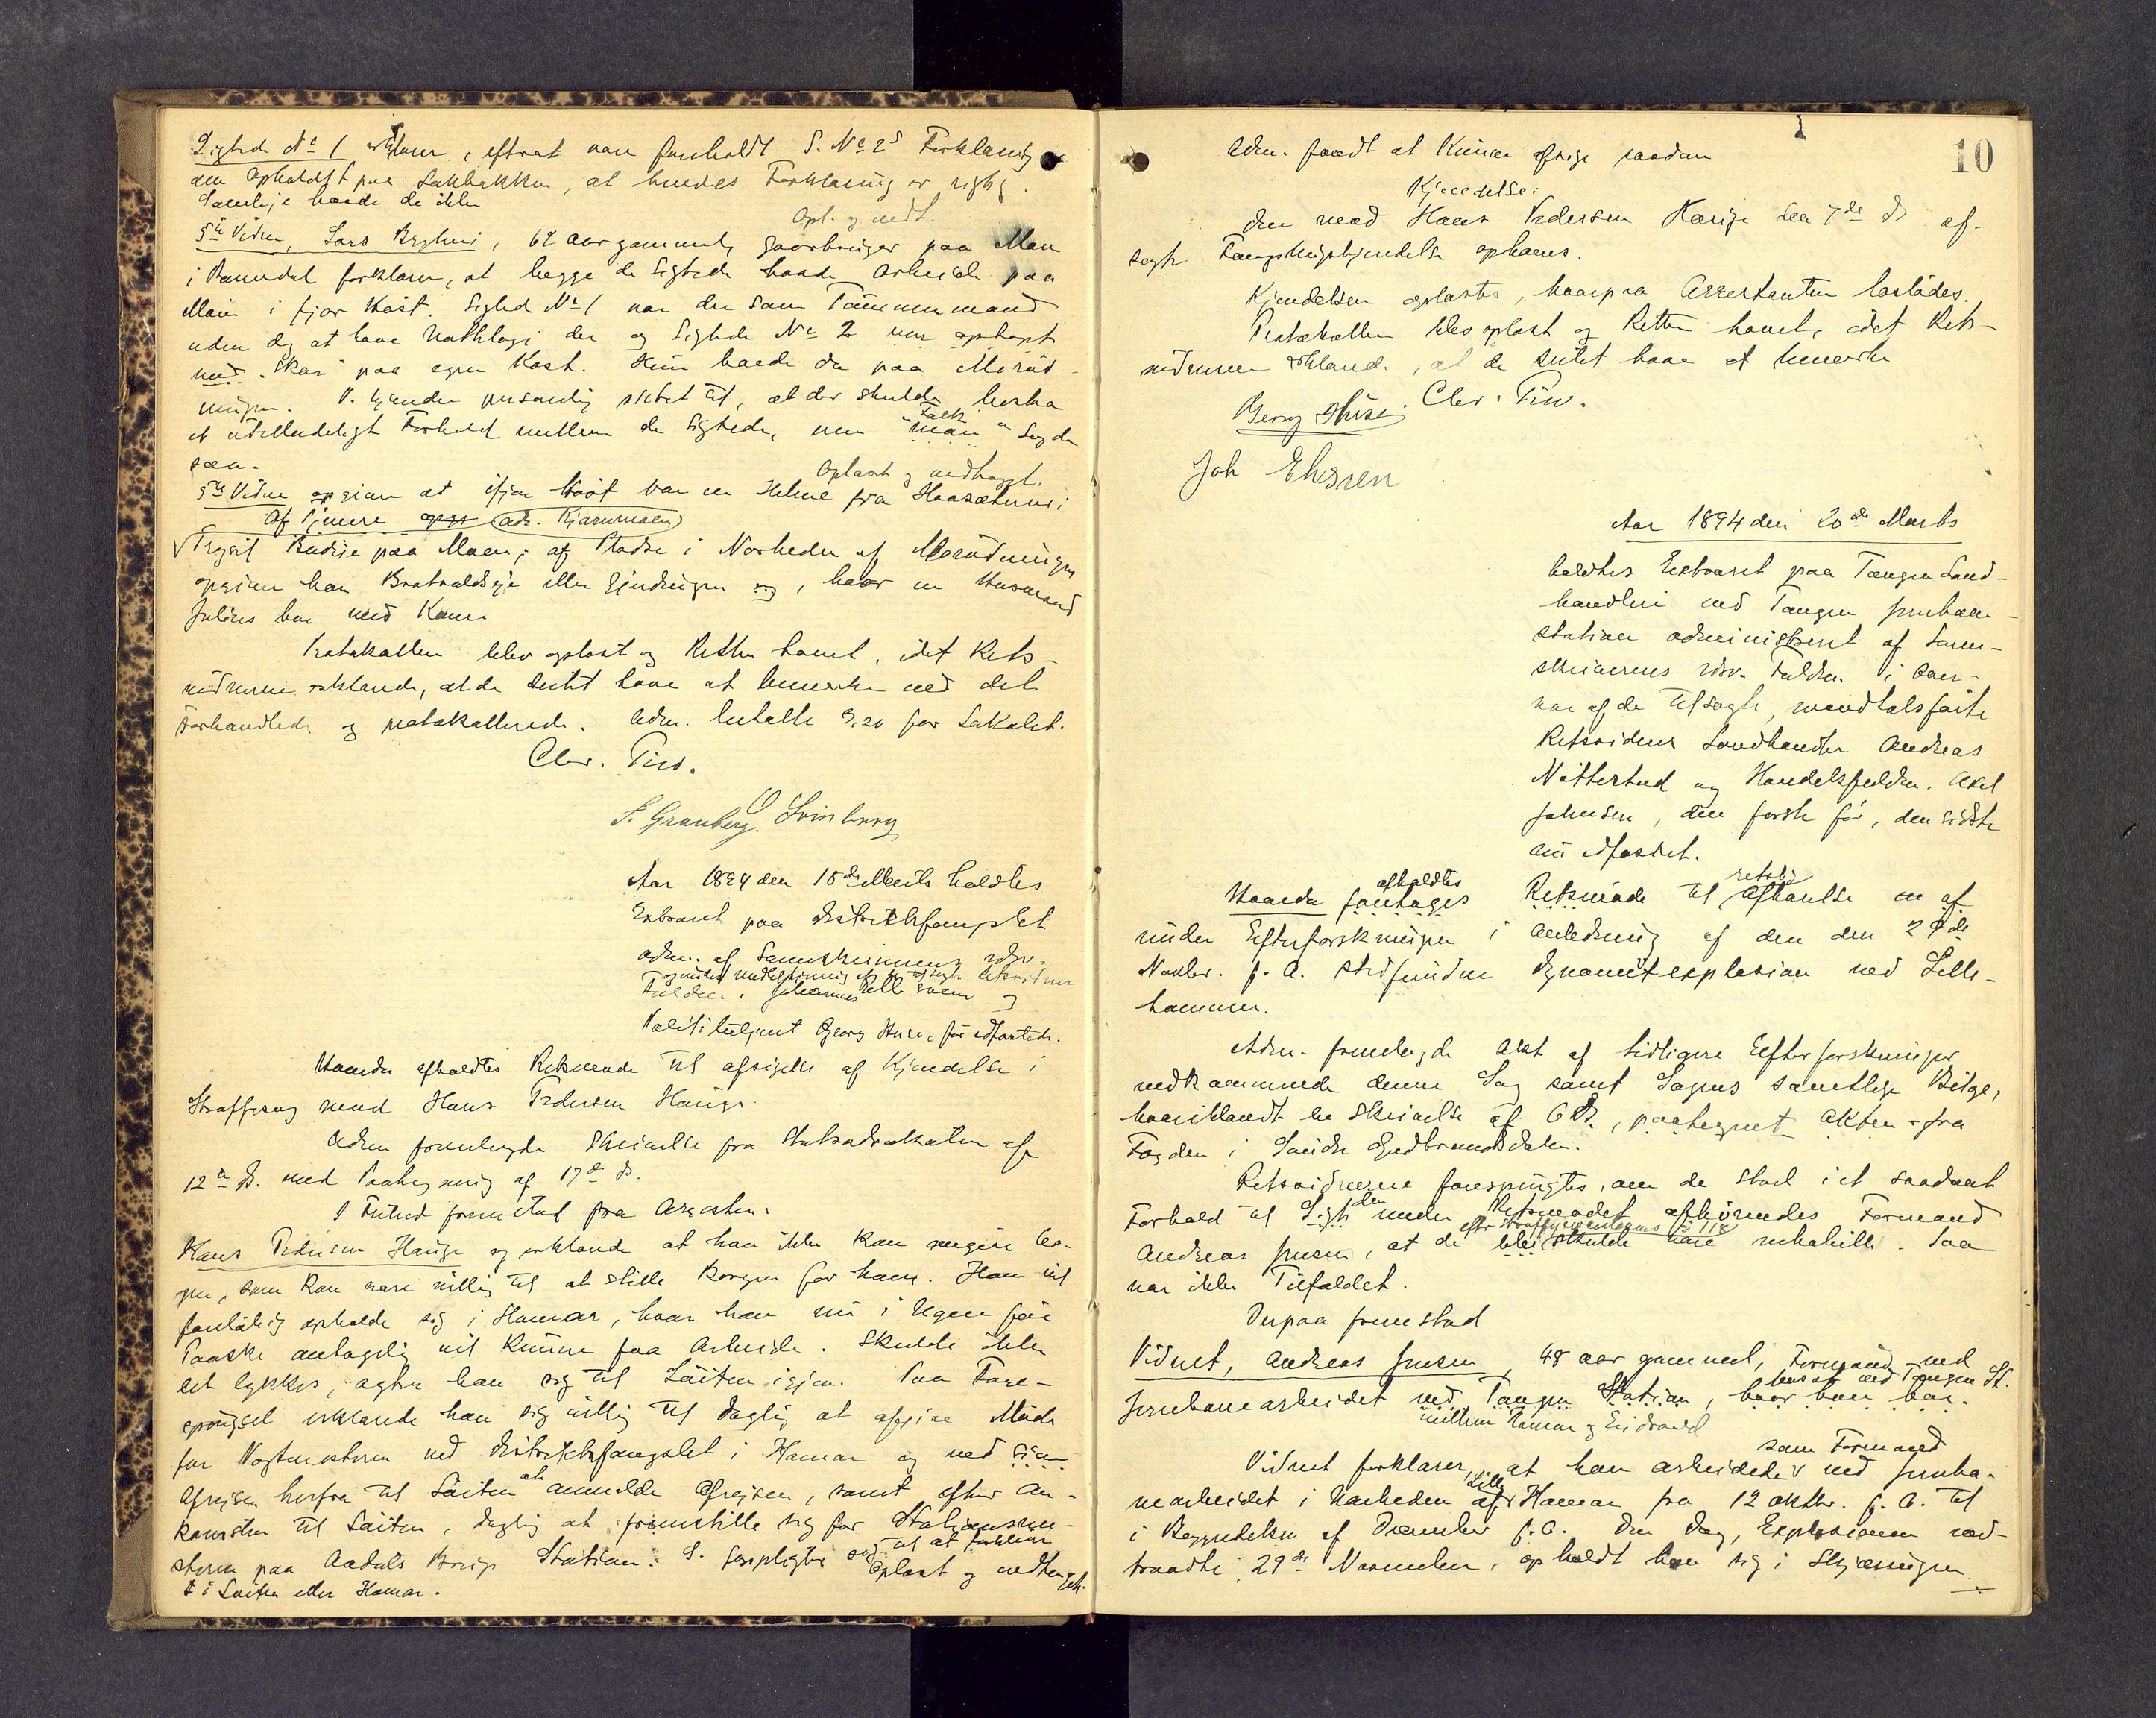 Sigtede No 1 erklærer, efterat være foreholdt S. No 2s Forklaring
om Opholdet paa Sakbakken, at hendes Forklaring er rigtig.
Samleje havde de ikke
Opl. og vedt.
5te Vidne, Lars Bryhni, 62 Aar gammel, gaardbruger paa Moen
i Romedal forklarer, at begge de Sigtede havde Arbeide paa
Moen i fjor Høst. Sigtede No 1 var der som Tømmermand
uden dog at have Natteloge der og Sigtede No 2 var optaget
med "Skur" paa egen Kost. Hun havde da paa
V. kjender personlig intet til, at der skulde herske
et utilladeligt Forhold mellem de Sigtede, men "man" Folk sagde
saa.
Oplæst og vedtaget.
5te Vidne opgiver at ifjor Høst var en Helene fra
Af Tjenere (adr. Kjærnmoen)
Budeie paa Moen; af Pladse i Nærheden af
opgiver han eller Ejendeigen, hvor en Husmand
Julius bor med Kone
Protokollen blev oplæst og Retten hævet, idet Rets-
vidnerne erklærede, at de Intet have at bemærke ved det
Forhandlede og protokollerede. Adm. betalte 3.20 for Lokalet.
Chr. Piro.
S. Granberg. O Svinberg
Aar 1894 den 18de Marts holdtes
Extraret paa Distriktsfængslet
adm. af Sorenskriverens edsv.
og under medbetjening af de tilsagte Retsvidner
Fuldm. Johannes og
Politibetjent Georg Huse, før edfæstede.
Hvorda afholdtes Retsmøde til afsigelse af Kjendelse i
Straffesag mod Hans Pedersen Hauge.
Adm fremlagde Skrivelse fra Statsadvokaten af
12te ds. med Paategning af 17de ds.
I Frihed fremstod fra Arresten:
Hans Pedersen Hauge og erklærede at han ikke kan angive no-
gen, som kan være villig til at stille Borgen for ham. Han vil
foreløbig opholde sig i Hamar, hvor han nu i Ugen før
Paaske antagelig vil kunne faa Arbeide. Skulde ikke
det lykkes, agter han sig til Løiten igjen. Paa Fore-
spørgsel erklærede han sig villig til daglig at afgive Møde
for Vagtmesteren ved Distriktsfængslet i Hamar og ved sin
Afreisen herfra til Løiten at anmelde Afreisen, samt efter An-
komsten til Løiten, daglig at fremstille sig for Stationsme-
steren paa Aadals Brug Station. S. forpligter sig til at forblive
Oplæst og vedtaget.
i Løiten eller Hamar.
10
Adm. fandt at kunne afsige saadan
Kjendelse:
Den mod Hans Pedersen Hauge den 7de ds af-
sagte Fængslingskjendelse ophæves.
Kjendelsen oplæstes, hvorpaa Arrestanten løslodes.
Protokollen blev oplæst og Retten hævet, idet Rets-
vidnerne erklærede, at de Intet have at bemærke
Georg Huse. Chr. Piro.
Joh Ehsren
Aar 1894 den 20de Marts
holdtes Extraret paa Tangen Land-
handleri ved Tangen Jernbane-
station administreret af Soren-
skriverens edsv. Fuldm. i Over-
vær af de tilsagte, mandtalsførte
Retsvidner Landhandler Andreas
Nøttestad og Handelsfuldm. Axel
Johnsen, den første før, den sidste
nu edfæstet.
Hvorda foretages afholdtes Retsmøde til retslig Afhørelse af
under Efterforskningen i Anledning af den den 29de
Novbr. f. A. stedfundne Dynamitexplosion ved Lille-
hammer.
Adm. fremlagde Akt af tidligere Efterforskninger
vedkommende denne Sag samt Sagens samtlige Bilage,
hvoriblandt en Skrivelse af 6 ds., paategnet Akten fra
Fogden i Søndre Gudbrandsdalen.
Retsvidnerne forespurgtes, om de stod i et saadant
Forhold til den under Retsmødet afhørendes Formand
Andreas Jensen, at de efter Straffeproceslovens § 118 blev skulde være inhabile. Saa
var ikke Tilfældet.
Derpaa fremstod
Vidnet, Andreas Jensen, 48 Aar gammel, Formand ved
Jernbanearbeidet ved Tangen Station, bosat ved Tangen St. hvor han bor.
mellem Hamar og Eidsvold
Vidnet forklarer, at han arbeidede som Formand ved Jernba-
nearbeidet i Nærheden af Lille Hamar fra 12 Oktbr. f. A. til
i Begyndelsen af December f. A. Den Dag, Explosionen ind-
traadte, 29de November, opholdt han sig i Skjæringen